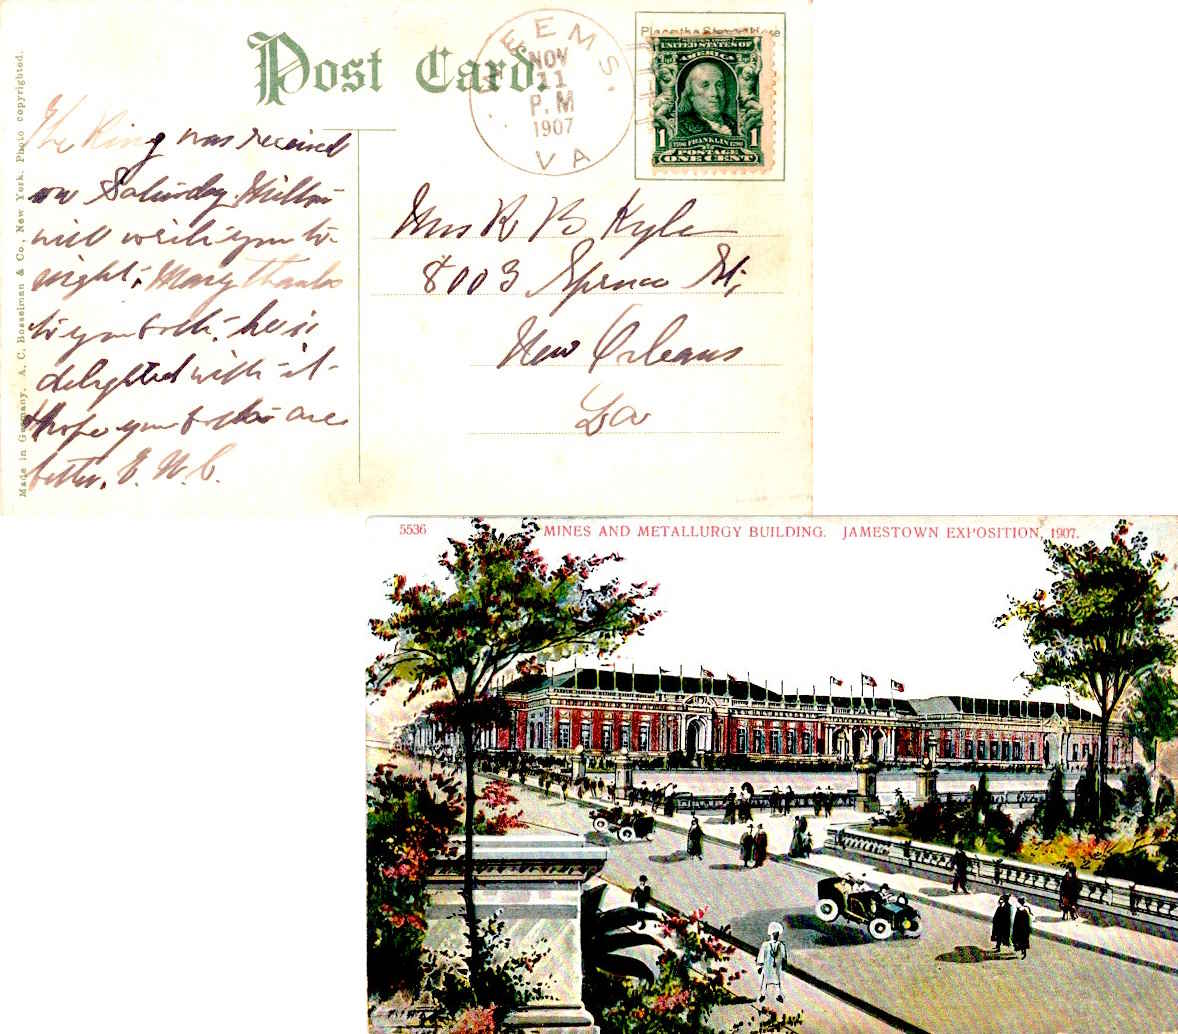 Post Card
Made in Germany. A. C. Bosselman & Co., New York. Photo copyrighted.
WEEMS.
NOV
11
P.M
1907
VA
Place the Stamp Here
SERIES 1902
UNITED STATES OF
AMERICA
1706 FRANKLIN 1790
1 POSTAGE 1
ONE CENT
The Ring was received
on Saturday. Milton
will write you to-
night. Many thanks
to you both, he is
delighted with it-
I hope you both are
better. E. W. C.
Mrs R B Kyle
8003 Spruce St,
New Orleans
La
5536 MINES AND METALLURGY BUILDING. JAMESTOWN EXPOSITION, 1907.